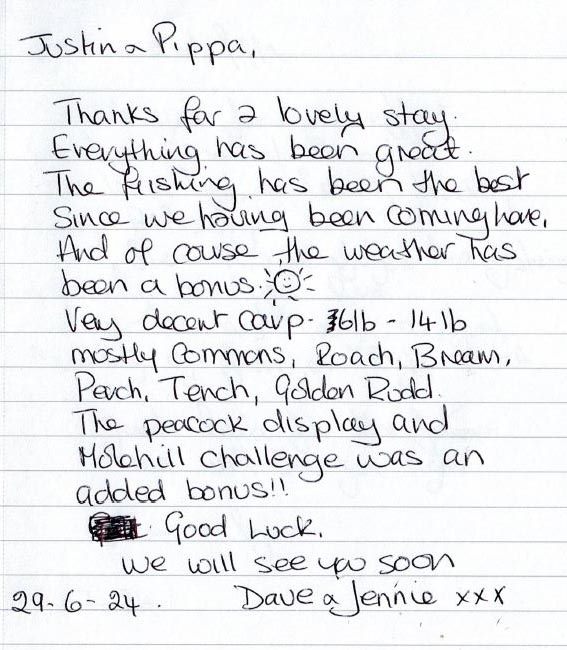 Justin & Pippa,
Thanks for a lovely stay.
Everything has been great.
The fiishing has been the best
Since we having been coming here,
And of course the weather has
been a bonus.
Very decent carp - 6lb - 14lb
mostly Commons, Roach, Bream,
Perch, Tench, Golden Rudd.
The peacock display and
Molehill challenge was an
added bonus!!
Good Luck.
we will see you soon
29-6-24. Dave & Jennie xxx